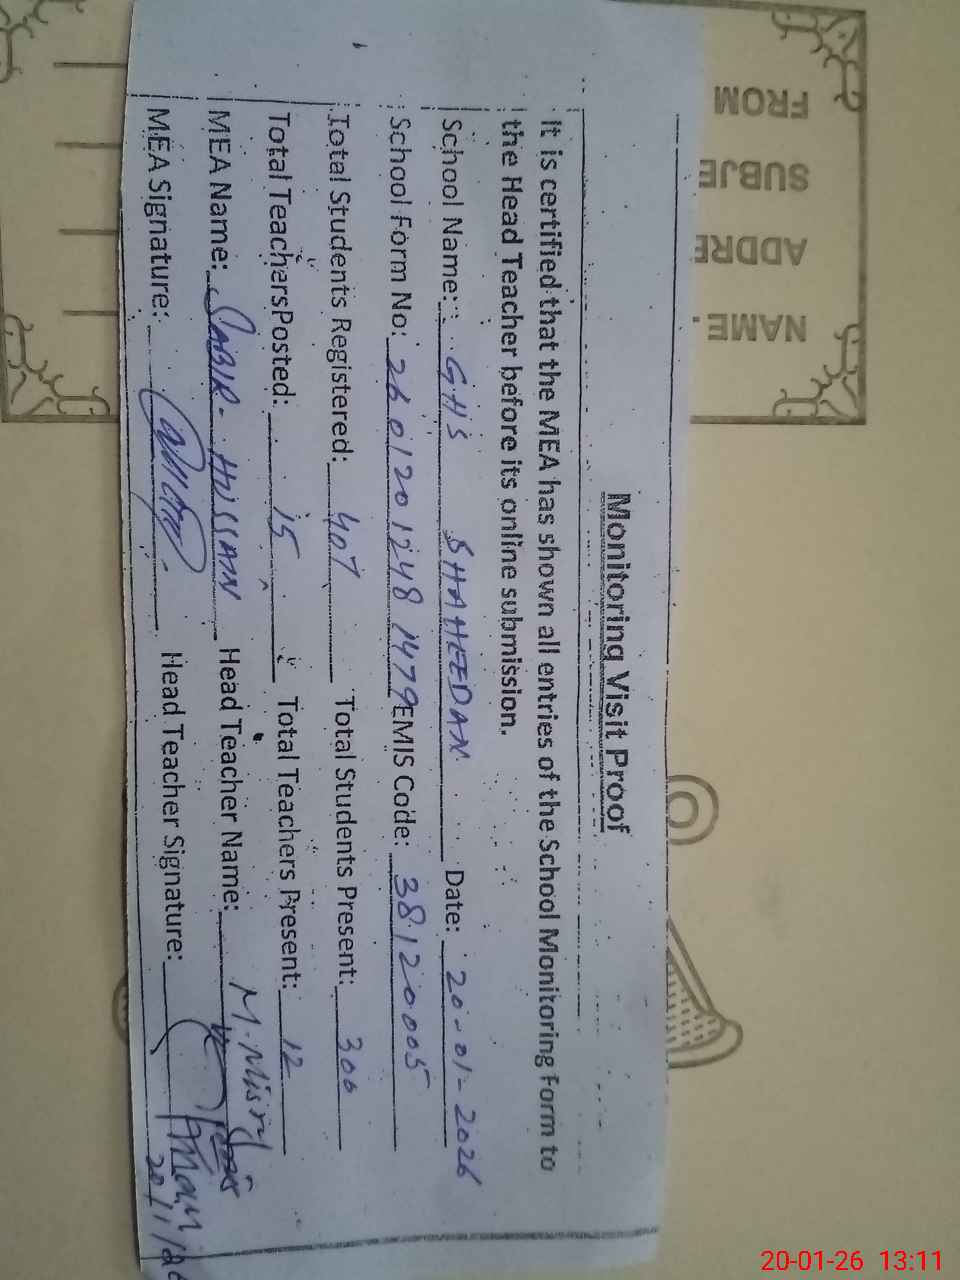 Monitoring Visit Proof
It is certified that the MEA has shown all entries of the School Monitoring Form to
the Head Teacher before its online submission.
School Name: GHS SHAHEEDAN Date: 20-01-2026
School Form No: 26012012481479 EMIS Code: 38120005
Total Students Registered: 407 Total Students Present: 300
Total Teachers Posted: 15 Total Teachers Present: 12
MEA Name: SABIR HUSSAIN Head Teacher Name: M.
MEA Signature: Head Teacher Signature:
20/1/26
NAME
ADDRE
SUBJE
FROM
20-01-26 13:11